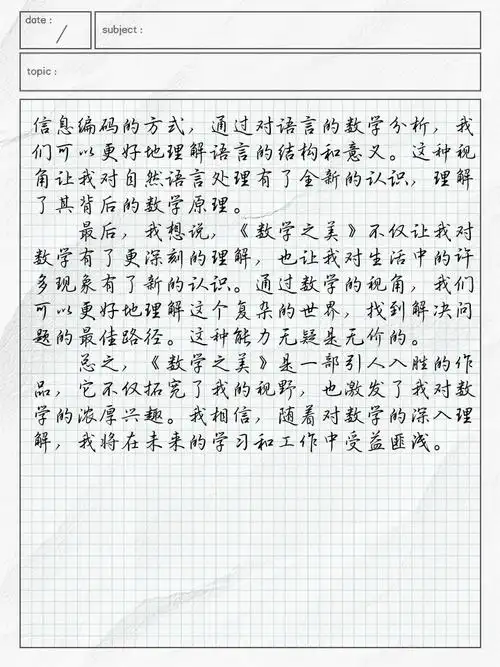 date :
/
subject :
topic :
信息编码的方式，通过对语言的数学分析，我
们可以更好地理解语言的结构和意义。这种视
角让我对自然语言处理有了全新的认识，理解
了其背后的数学原理。
最后，我想说，《数学之美》不仅让我对
数学有了更深刻的理解，也让我对生活中的许
多现象有了新的认识。通过数学的视角，我们
可以更好地理解这个复杂的世界，找到解决问
题的最佳路径。这种能力无疑是无价的。
总之，《数学之美》是一部引人入胜的作
品，它不仅拓宽了我的视野，也激发了我对数
学的浓厚兴趣。我相信，随着对数学的深入理
解，我将在未来的学习和工作中受益匪浅。